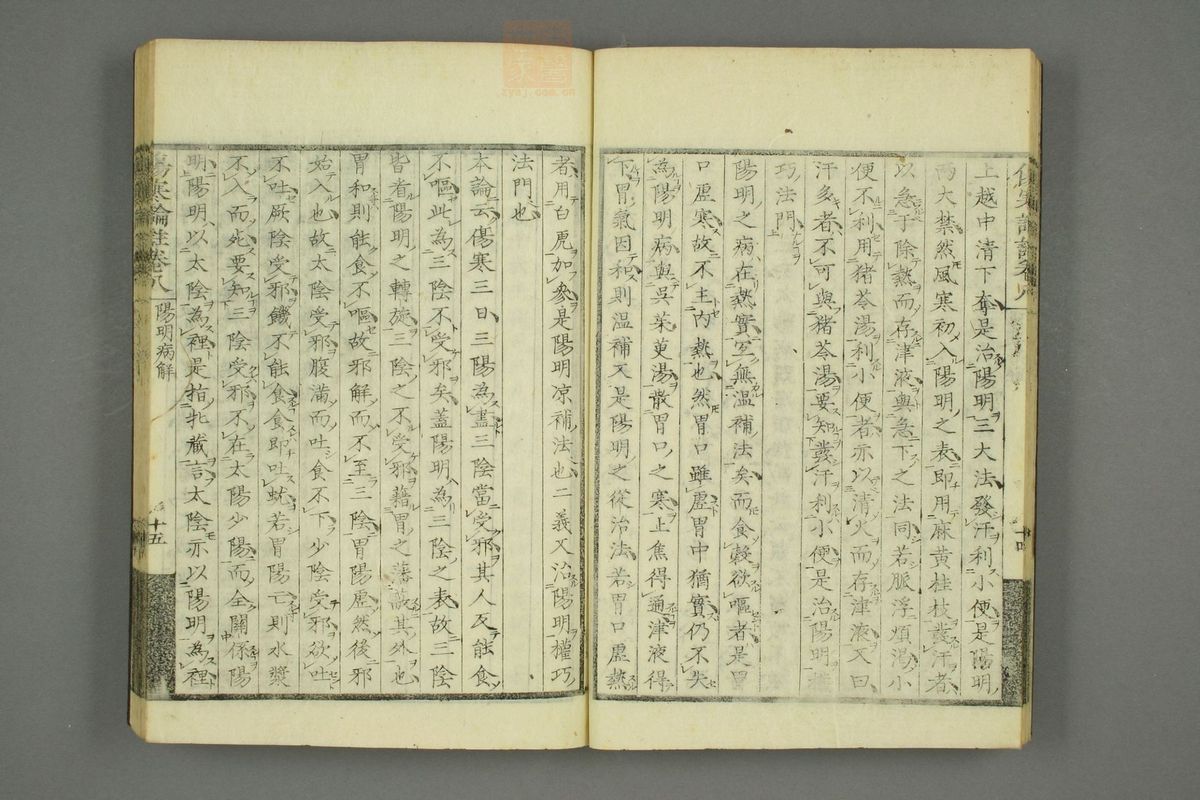 上越中清下奪是治陽明三大法發汗利小便是陽明
兩大禁然風寒初入陽明之表即用麻黃桂枝發汗者
以急于除熱而存津液與急下之法同若脈浮煩渴小
便不利用猪苓湯利小便者亦以清火而存津液又曰
汗多者不可與猪苓湯要知發汗利小便是治陽明
巧法門
陽明之病在熱實宜無溫補法矣而食穀欲嘔者是胃
口虛寒故不主內熱也然胃口雖虛胃中猶實仍不失
為陽明病與吳茱萸湯散胃口之寒上焦得通津液得
下胃氣因和則溫補又是陽明之從治法若胃口虛熱
者用白虎加參是陽明凉補法也二義又治陽明權巧
法門也
本論云傷寒三日三陽為盡三陰當受邪其人反能食
不嘔此為三陰不受邪矣蓋陽明為三陰之表故三陰
皆看陽明之轉旋三陰之不受邪藉胃之藩蔽其外也
胃和則能食不嘔故邪解而不至三陰胃陽虛然後邪
始入也故太陰受邪腹滿而吐食不下少陰受邪欲吐
不吐厥陰受邪饑不能食食即吐蚘若胃陽亡則水漿
不入而死要知三陰受邪不在太陽少陽而全關係陽
明陽明以太陰為裡是指牝藏言太陰亦以陽明為裡
傷寒論註卷八
陽明病解
十五